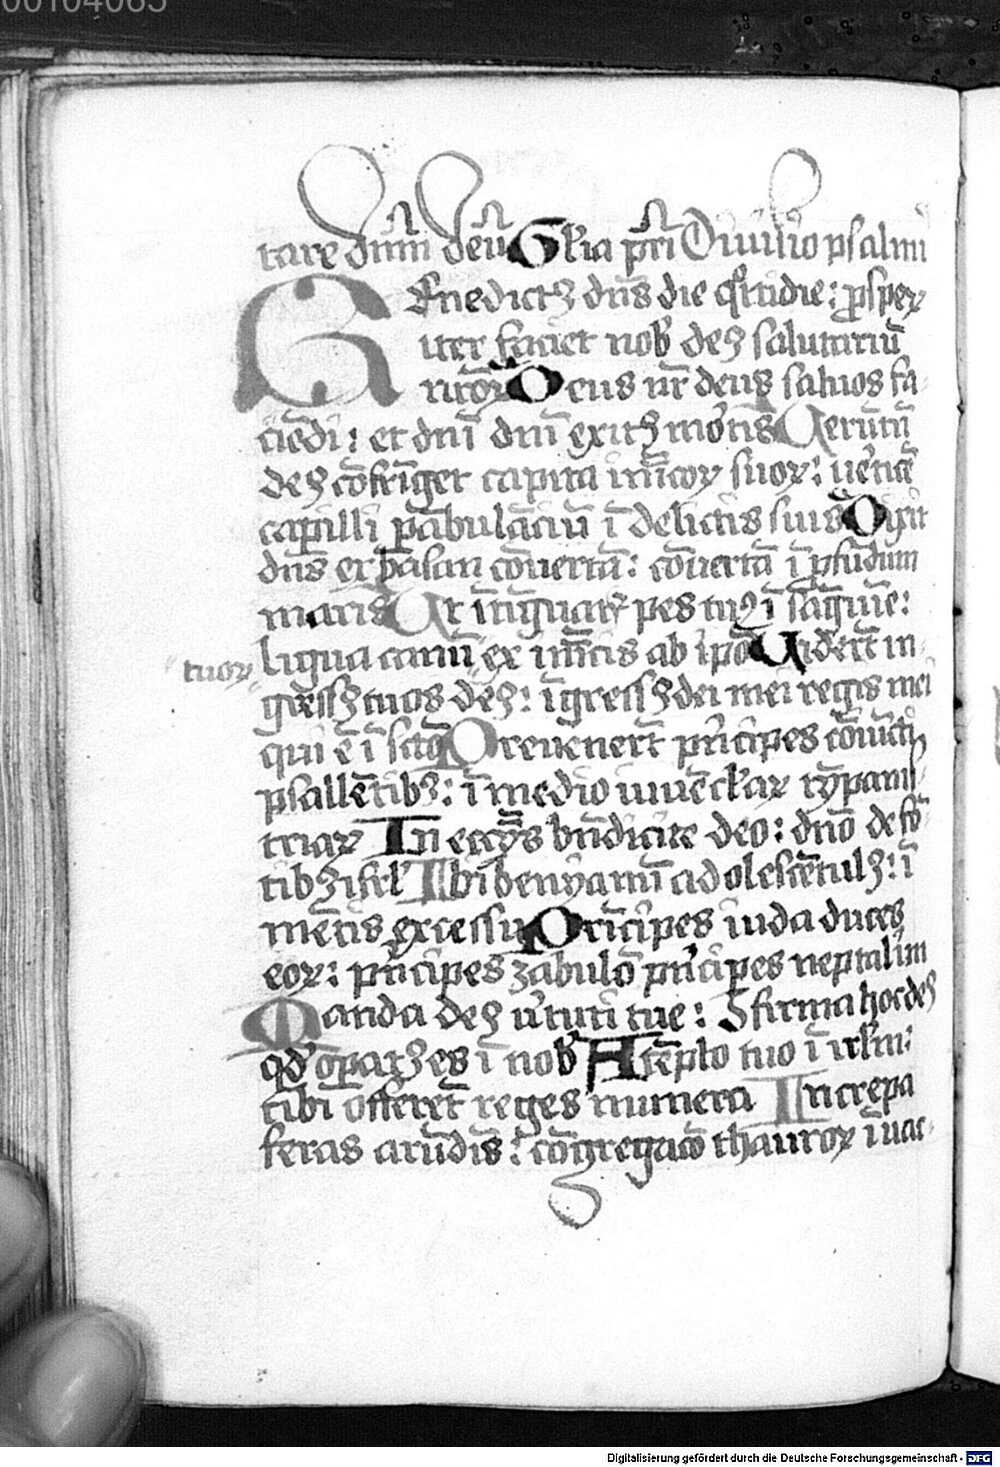 00104065
tare dn̄m deū Gl'ia pr̄i Diuisio psalmi
Benedictꝰ dn̄s die q̄ttidie: ꝓsperꝝ
iter faciet nob' deꝰ salutariū
nr̄oꝝ Deus nr̄ deus saluos fa-
ciēdi: et dn̄i dn̄i exitꝰ mortis Uerūtn̄
deꝰ cōfrīget capita inīcoꝝ suoꝝ: uerticē
capilli ꝑābulāciū ī delictis suis Dixit
dn̄s ex basan cōuertā: cōuertā ī ꝓfūdum
maris Ut ītīguatʳ pes tuꝰ ī sāguīe:
ligua canū
tuoꝝ
ex inīcis ab ipō Uiderūt in-
gressꝰ tuos deꝰ: īgressꝰ dei mei regis mei
qui ē ī scō Preuenerūt prīcipes cōiūcti
psallētibꝰ: ī medio iuuēclaꝝ tȳpanis-
triaꝝ In eccȳs bn̄dicite deo: dn̄o de fō-
tibꝰ isrl' Ibi beniyamī adolescētulꝰ: ī
mētis excessu Prīcipes iuda duces
eoꝝ: prīcipes zabulō prīcipes neptalim
Manda deꝰ uirtuti tue: Ɔfirma hoc deꝰ
qd' opatꝰ es ī nob' A tēplo tuo ī irl'm:
tibi offerēt reges munera Increpa
feras arūdīs: cōgregacō thauroꝝ ī uac-
Digitalisierung gefördert durch die Deutsche Forschungsgemeinschaft - DFG